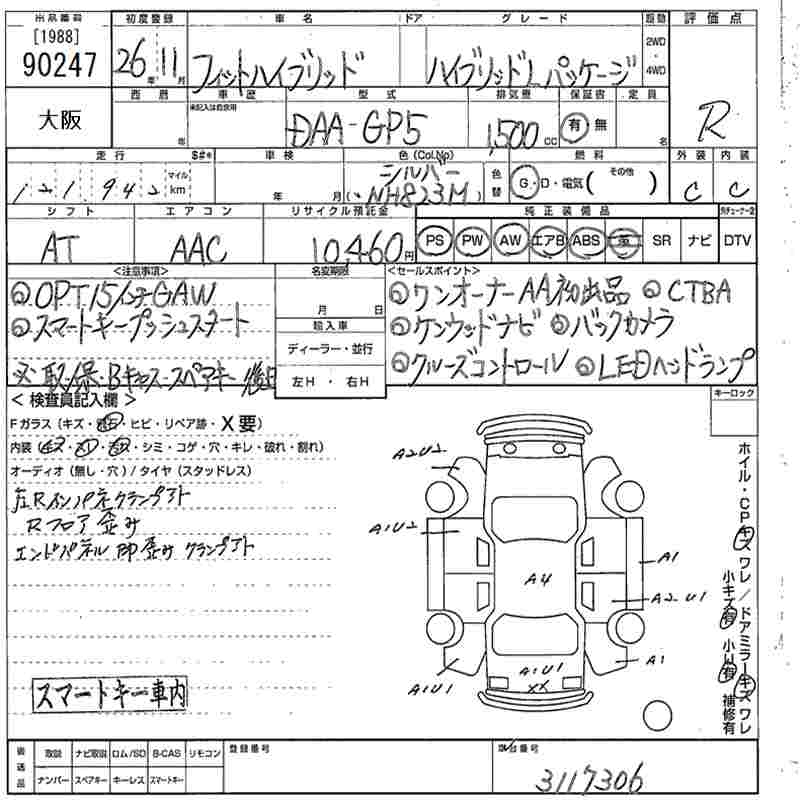 出品番号 初度登録 車名 ドア グレード 駆動 評価点
[1988]
90247 26年 11月 フィットハイブリッド ハイブリッドLパッケージ 2WD・4WD R
大阪 西暦 車歴 型式 排気量 保証書 定員
年 未記入は自家用 DAA-GP5 1,500cc 有 無 名
走行 $#* 車検 色(Col,No) 燃料 外装 内装
121,942 マイル km 年 月 シルバー (・NH823M) 色替 G・D・電気( その他 ) C C
シフト エアコン リサイクル預託金 純正装備品
AT AAC 10,460円 PS PW AW エアB ABS 革 SR ナビ DTV
<注意事項> 名変期限 <セールスポイント>
◎OPT15インチGAW 月 日 ◎ワンオーナーAA初出品 ◎CTBA
◎スマートキープッシュスタート 輸入車 ◎ケンウッドナビ ◎バックカメラ
ディーラー・並行
※取・保・Bキャス・スペアキー 後日 左H・右H ◎クルーズコントロール ◎LEDヘッドランプ
<検査員記入欄> キーロック
Fガラス(キズ・飛石・ヒビ・リペア跡・X要)
内装(キズ・汚レ・ ・シミ・コゲ・穴・キレ・破れ・割れ)
オーディオ(無し・穴)/タイヤ(スタッドレス)
左Rインパネクランプ跡
Rフロア歪み
エンドパネル 歪み クランプ跡
スマートキー車内
A2U2
A1U2
A4
A1
A2U1
A1
A1U1
A1U1
XX
ホイル・CPキズ ワレ/ドアミラーキズ ワレ
小キズ有 小U有 補修有
後送品 取説 ナビ取説 ロム/SD B-CAS リモコン 登録番号 車台番号
ナンバー スペアキー キーレス スマートキー 3117306